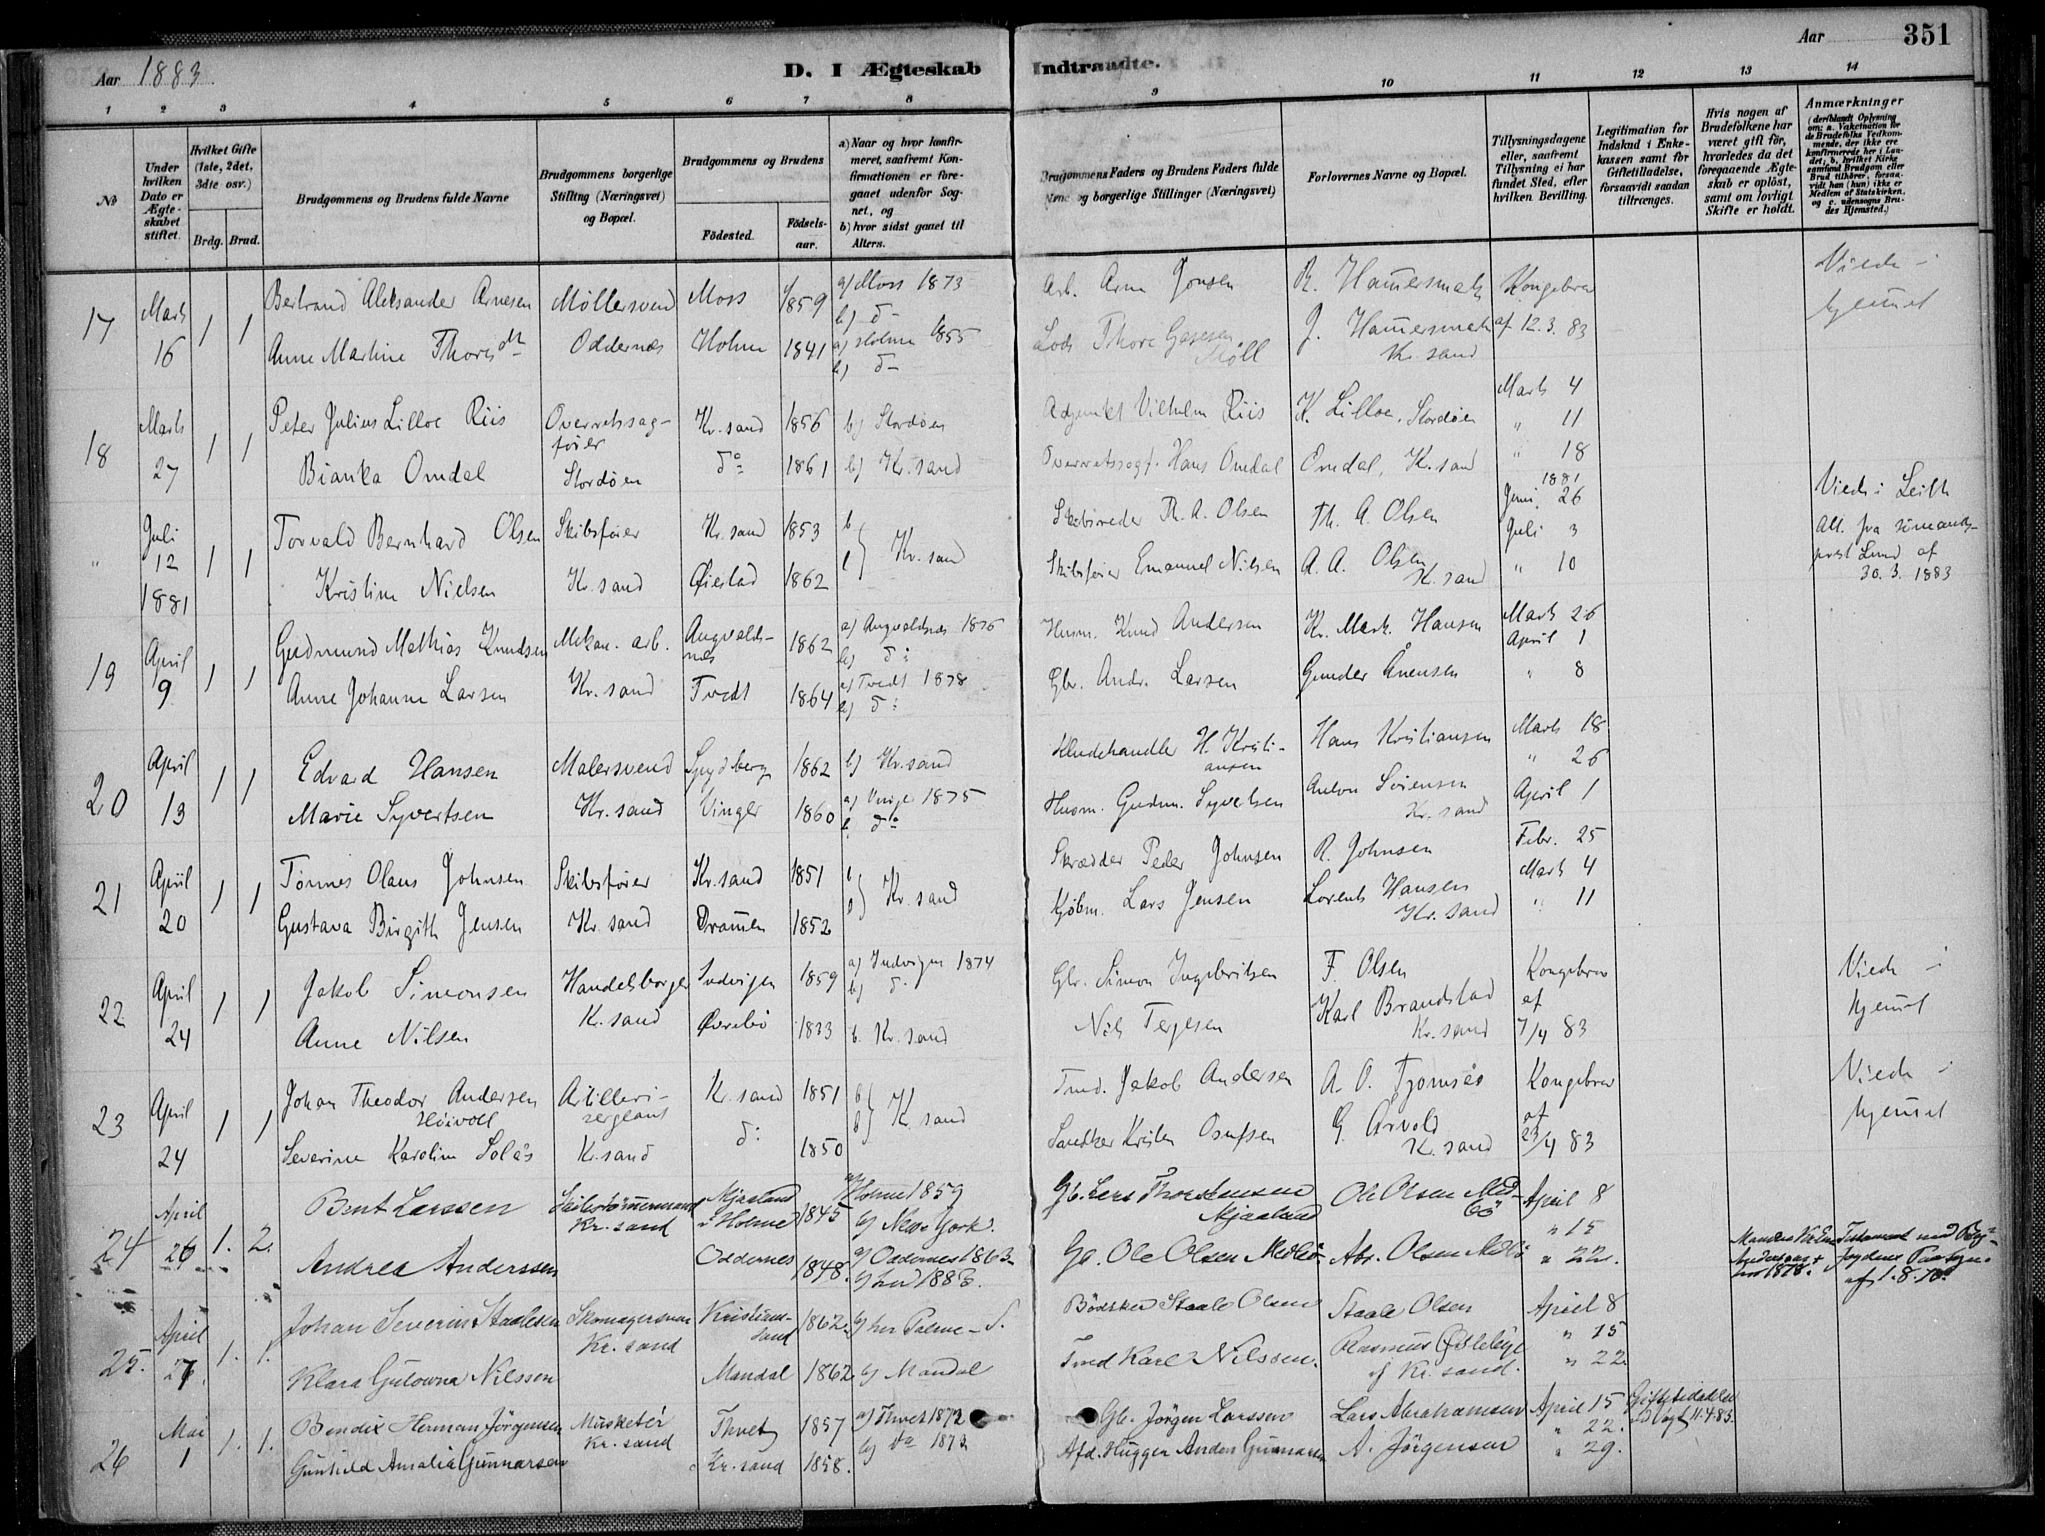 Aar 1883
D. I Ægteskab Indtraadte.
Aar 351
1 2 3 4 5 6 7 8 9 10 11 12 13 14
No
Under hvilken Dato er Ægteskabet stiftet.
Hvilket Gifte (1ste, 2det, 3die osv.)
Brdg. Brud.
Brudgommens og Brudens fulde Navne
Brudgommens borgerlige Stilling (Næringsvei) og Bopæl.
Brudgommens og Brudens
Födested. Födselsaar.
a) Naar og hvor konfirmeret, saafremt Konfirmationen er foregaaet udenfor Sognet, og
b) hvor sidst gaaet til Alters.
Brudgommens Faders og Brudens Faders fulde Navne og borgerlige Stillinger (Næringsvei)
Forlovernes Navne og Bopæl.
Tillysningsdagene eller, saafremt Tillysning ei har fundet Sted, efter hvilken Bevilling.
Legitimation for Indskud i Enkekassen samt for Giftetilladelse, forsaavidt saadan tiltrænges.
Hvis nogen af Brudefolkene har været gift för, hvorledes da det foregaaende Ægteskab er oplöst, samt om lovligt Skifte er holdt.
Anmærkninger (deriblandt Oplysning om: a. Vakcination for de Brudefolks Vedkommende, der ikke ere konfirmerede her i Landet, b. hvilket Kirkesamfund Brudgom eller Brud tilhörer, forsaavidt han (hun) ikke er Medlem af Statskirken, og c. udensogns Brudes Hjemsted.)
17 Marts 16 1 1
Bertrand Aleksander Arnesen Möllersvend Moss 1859 a) Moss 1873 b) do
Arb. Arne Jonsen R. Hamersmark Kongebrev Viede i
Anne Martine Thores dtr Oddernes Holme 1841 a) Holme 1855 b) do
Lods Thore J. Hamersmark af 12.3.83 hjemmet
Kr.sand
18 Marts 27 1 1
Peter Julius Lilloe Riis Overretssagfører Kr.sand 1856 b) Stordøen
Adjunkt Vilhelm Riis K. Lilloe, Stordøen Marts 4
" 11
Bianka Omdal Stordøen do 1861 b) Kr.sand
Overretssagf. Hans Omdal Omdal, Kr.sand " 18
" Juli 12 1881 1 1
Torvald Bernhard Olsen Skibsfører Kr.sand 1853 b
Skibsreder Th. A. Olsen Th. A. Olsen 1881 Juni 26 Viede i Leith
Juli 3 Att. fra sömandsprest Lund af 30.3.1883
Kristine Nielsen Kr.sand Øiestad 1862 Kr.sand
Skibsfører Emanuel Nilsen A. A. Olsen Kr.sand " 10
19 April 9 1 1
Gudmund Mathias Knudsen Mekan. arb. Augvaldsnæs 1862 a) Augvaldsnæs 1876 b) do
Husm. Knud Andersen Kr. Mark. Hansen Marts 26
April 1
Anne Johanne Larsen Kr.sand Tvedt 1864 a) Tvedt 1878 b) do
Gbr. Andr. Larsen Gunder Enensen " 8
20 April 13 1 1
Edvard Hansen Malersvend Spydberg 1862 b) Kr.sand
Kludehandler H. Kristiansen Hans Kristiansen Marts 18
" 26
Marie Syvertsen Kr.sand Vinger 1860 a) Vinger 1875 b. do
Husm. Gudm. Syvertsen Anton Sörensen Kr.sand April 1
21 April 20 1 1
Tönnes Olaus Johnsen Skibsfører Kr.sand 1851 b
Skrædder Peder Johnsen R. Johnsen Febr. 25
Marts 4
Gustava Birgith Jensen Kr.sand Dramen 1852 b Kr.sand
Kjöbm. Lars Jensen Lorents Hansen Kr.sand " 11
22 April 24 1 1
Jakob Simonsen Handelsborger Indvigen 1859 a) Indvigen 1874 b) do
Gbr. Simon Ingebritsen F. Olsen Kongebrev Viede i
Anne Nilsen Kr.sand Øvrebö 1833 b. Kr.sand
Nils Terjesen Karl Brandstad Kr.sand af 7/4 83 hjemmet
23 April 24 1 1
Johan Theodor Andersen Höivoll Artillerisergeant Kr.sand 1851 b)
Tmd. Jakob Andersen A. O. Fjomsås Kongebrev Viede i
Severine Karoline Solås Kr.sand do 1850 b) Kr.sand
Snedker Kristen Osufsen G. Arvold Kr.sand af 23/4 83 hjemmet
24 April 26 1. 2.
Bent Larssen Skibstömmermand Kr.sand Mjaaland i Holme 1845 a) Holme 1859 b) New York.
Gb. Lars Thorstensen Mjaaland Ole Olsen Medbö April 8
" 15
Andrea Andersen Oddernes 1848. a) Oddernes 1863. b) her 1883.
Ga. Ole Olsen Medbö Abr. Olsen Medbö " 22.
af 1.8.
25. April 27. 1. 1.
Johan Severin Staalesen Skomagersvend Kr.sand Kristianssand 1862. b) her Palme-S.
Bödsker Staale Olsen Staale Olsen April 8
" 15
Klara Gulowna Nilssen Mandal 1862 b) Mandal
Tmd Karl Nilssen. Rasmus af Kr.sand. " 22.
26 Mai 1 1. 1.
Bendix Herman Jörgensen Musketér Kr.sand Thvet 1857 a) Thvet 1872 b) do 1872
Gb. Jörgen Larssen Lars Abrahamsen April 15 Giftetilladelse
" 22.
Gunhild Amalia Gunnarsen Kr.sand 1858.
Afd. Hugger Anders Gunnarsen A. Jörgensen " 29.